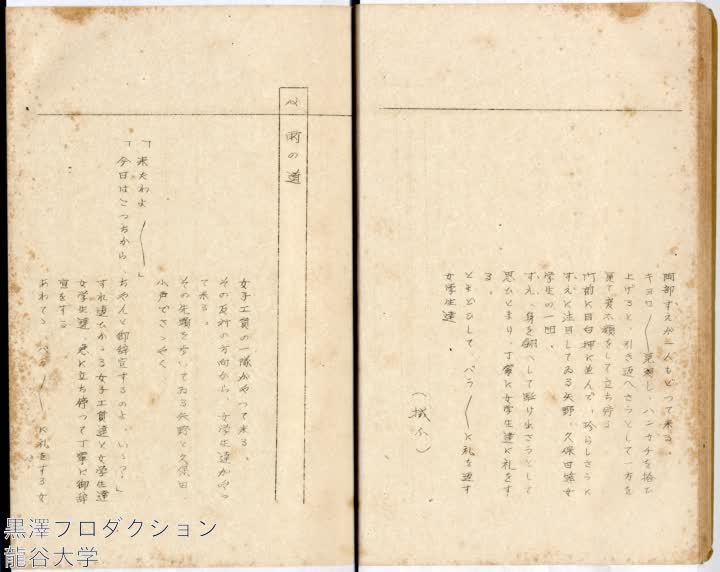 阿部すえが一人もどつて来る。
キヨロ〱見廻し、ハンカチを捨て
上げると、引き返へさうとして一方を
見て変な顔をして立ち停る
門前に目白押に並んで、珍らしさうに
すえに注目してゐる矢野、久保田等女
学生の一団。
すえ、身を翻へして駈け出さうとして
思ひとまり、丁寧に女学生達に礼をす
る。
とまどひして バラ〱に礼を返す
女学生達
(拭ふ)
町の道
女子工員の一隊がやつて来る。
その反対の方向から、女学生達がやつ
て来る。
その先頭を歩いてゐる矢野と久保田
小声でさゝやく
「来たわよ〱」
「今日はこつちから ちやんと御辞宜するのよ、いゝ?」
すれ違ひかゝる女子工員達と女学生達
女学生達、急に立ち停つて丁寧に御辞
宜をする
あわてゝ バラ〱に礼をする女
黒澤プロダクション
龍谷大学